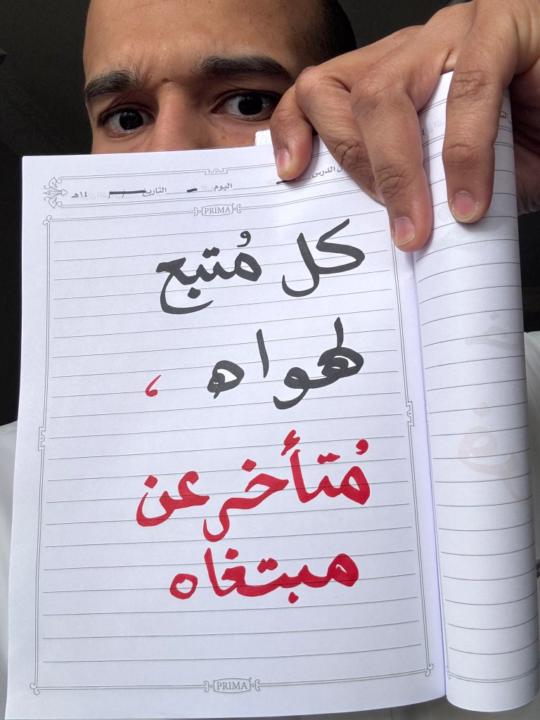 ن الدرس
اليوم
التاريخ
١٤هـ
PRIMA
كل مُتبع
لهواه ،
مُتأخر عن
مبتغاه
PRIMA